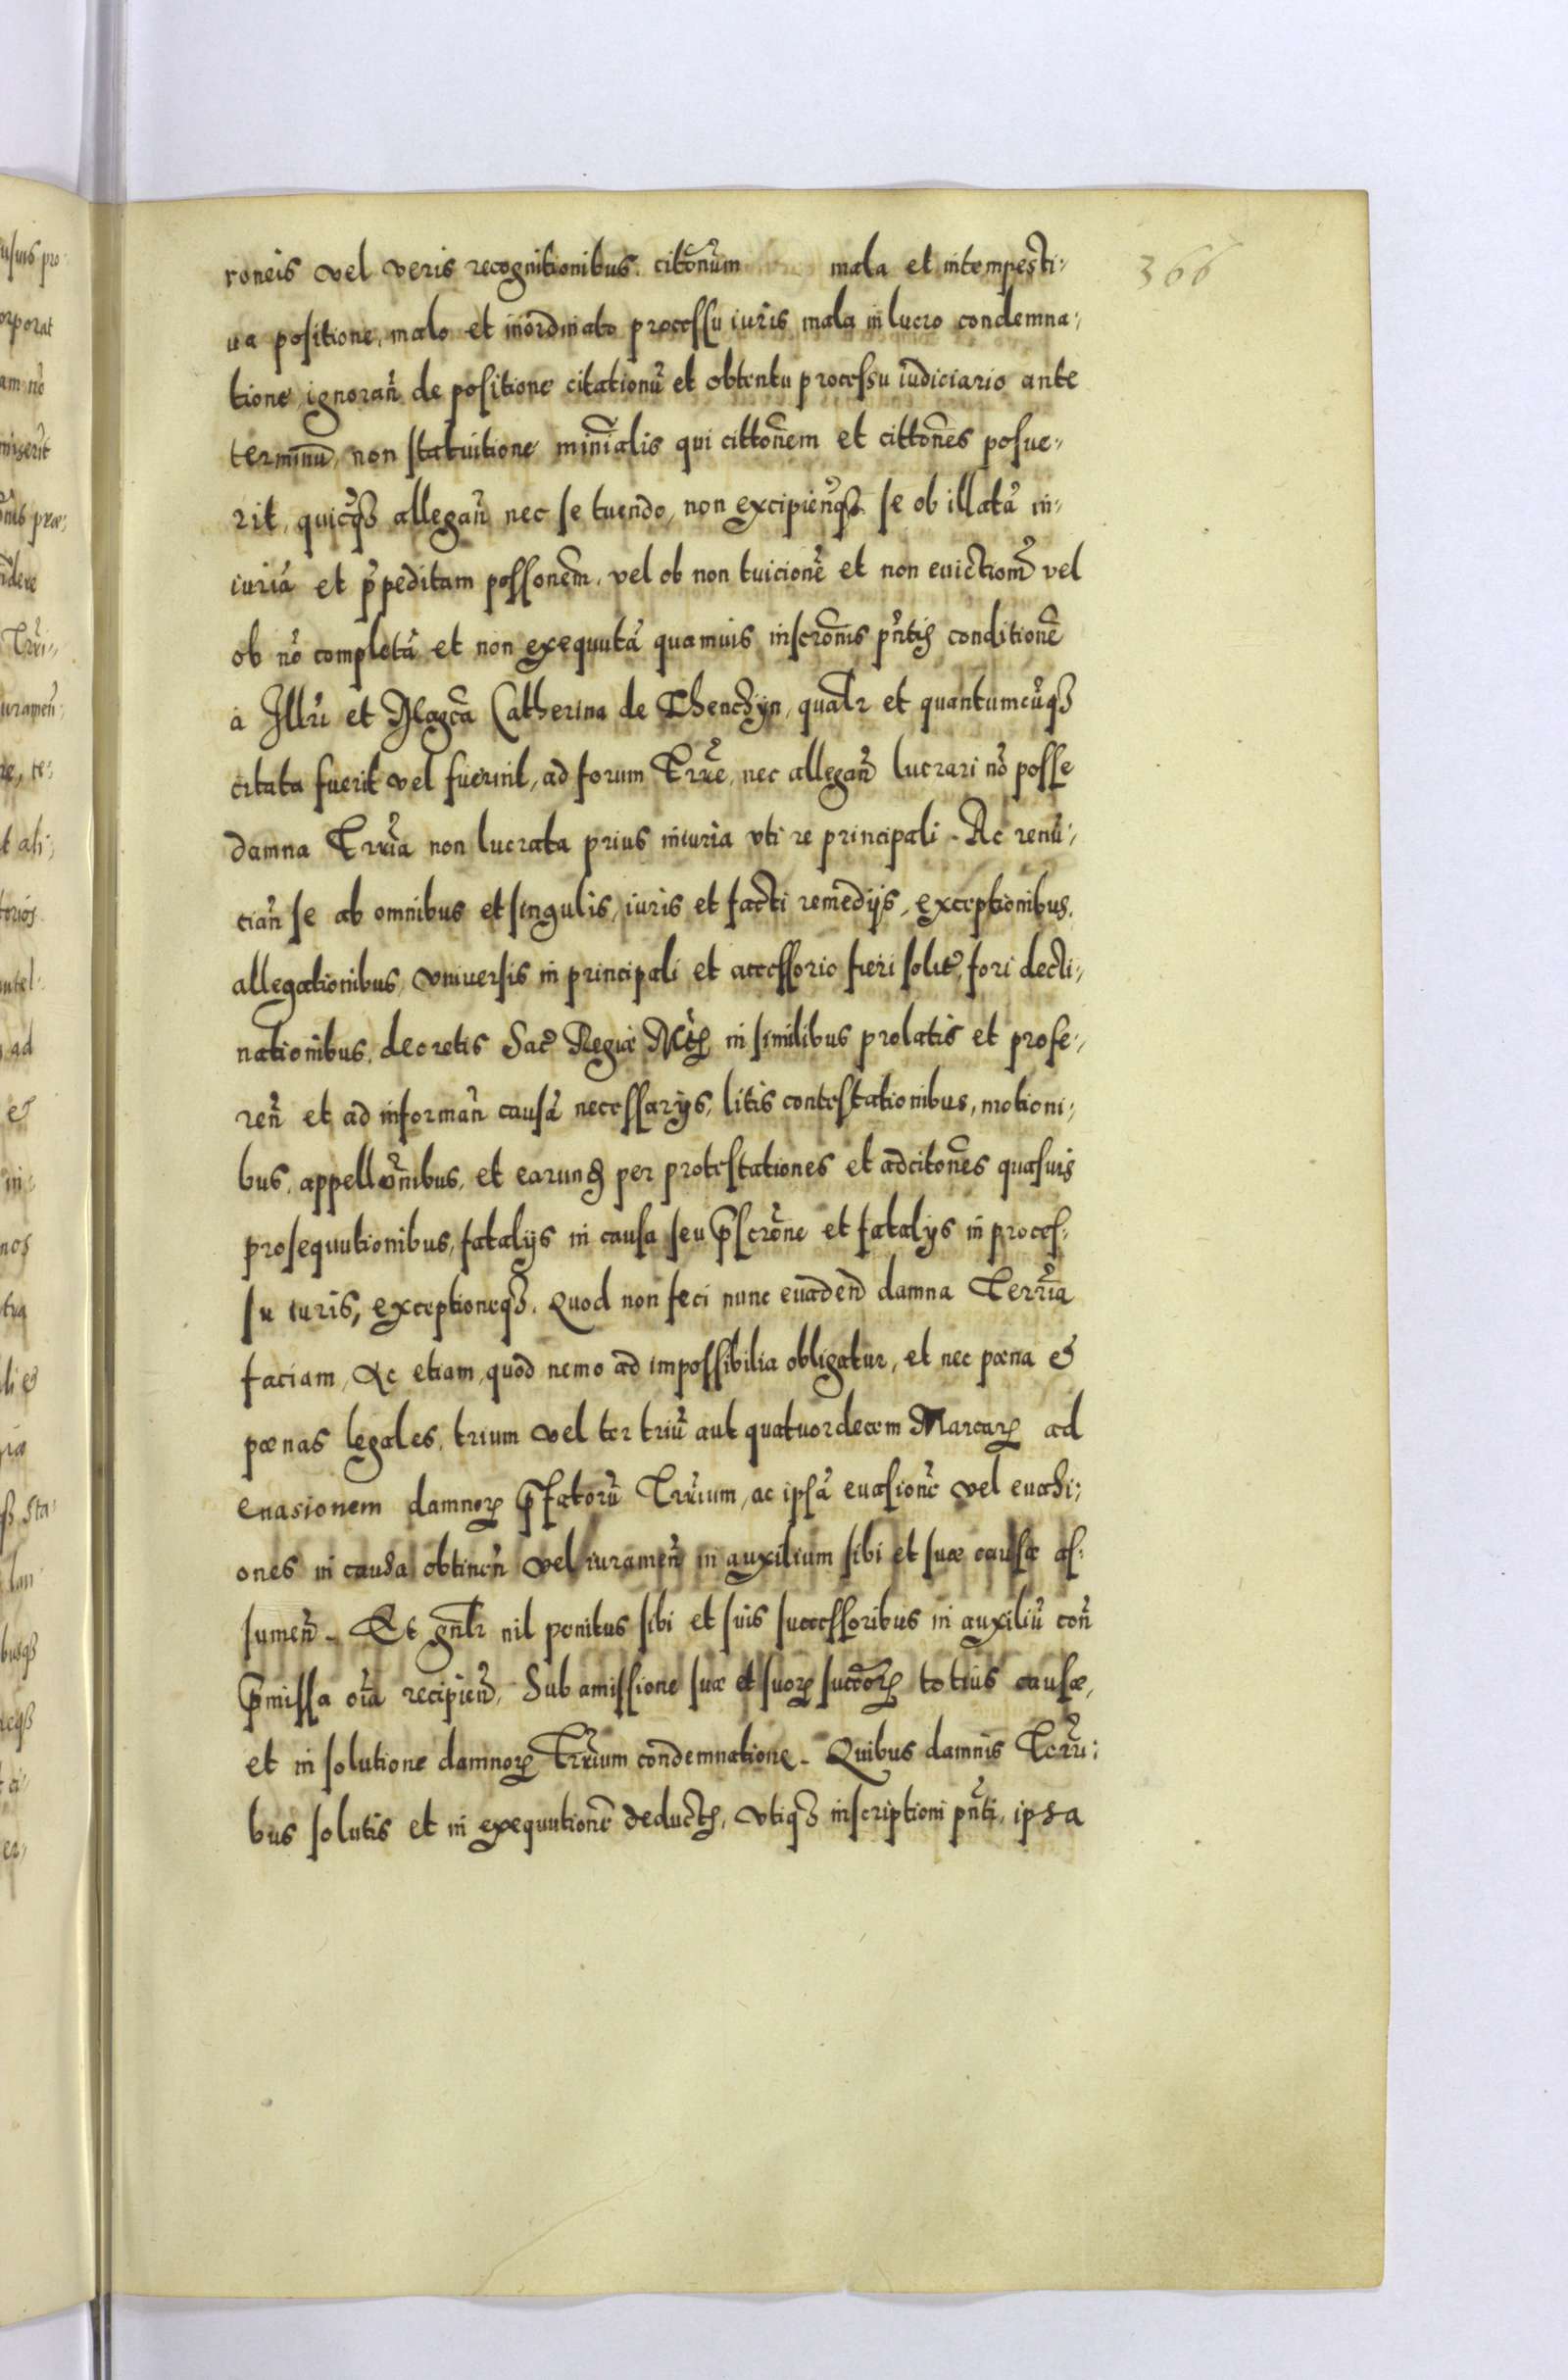 366
roneis vel veris recognitionibus. citõnum mala et intempesti-
ua positione, malo et inordinato processu iuris mala in lucro condemna-
tione ignorañ de positione citationũ et obtentu processu iudiciario ante
terminũ, non statuitione minĩalis qui cittõnem et cittõnes posue-
rit, quicq̃ allegañ nec se tuendo, non excipienq̃ se ob illatã in-
iuriã et p̃peditam possonẽm, vel ob non tuicionẽ et non euictionẽ vel
ob nõ completã et non exequutã quamuis inscrõnis pñtis conditionẽ
a Illri et Mag̃ca Catherina de Thenczyn, qualr et quantumcũq̃
citata fuerit vel fuerint, ad forum Trr̃e, nec allegañ lucrari nõ posse
damna Trr̃ia non lucrata prius iniuria vti re principali. Ac renũ-
ciañ se ab omnibus et singulis, iuris et facti remedijs, exceptionibus,
allegationibus, vniuersis in principali et accessorio fieri solit̃, fori decli-
nationibus, decretis Sac̃ Regiæ Mt̃is in similibus prolatis et profe-
reñ et ad informañ causã necessarijs, litis contestationibus, motioni-
bus, appellõnibus, et earund̃ per protestationes et adcitõnes quasuis
prosequutionibus, fatalijs in causa seu p̃scrõne et fatalijs in proces-
su iuris, exceptioneq̃. Quod non feci nunc euadend̃ damna Terr̃ia
faciam, Ac etiam, quod nemo ad impossibilia obligatur, et nec pœna &
pœnas legales, trium vel ter triũ aut quatuordecem Marcarũ ad
euasionem damnorũ p̃fatorũ Trr̃ium, ac ipsã euasionẽ vel euasi-
ones in causa obtineñ vel iuramẽn in auxilium sibi et suæ causæ as-
sumeñ. Et gñlr nil penitus sibi et suis successoribus in auxiliũ coñ
p̃missa oĩa recipieñ, Sub amissione suæ et suorũ succorũ totius causæ,
et in solutione damnorũ Trr̃ium condemnatione. Quibus damnis Terr̃i-
bus solutis et in exequutionẽ deductis, vtiq̃ inscriptioni pñti, ipsa